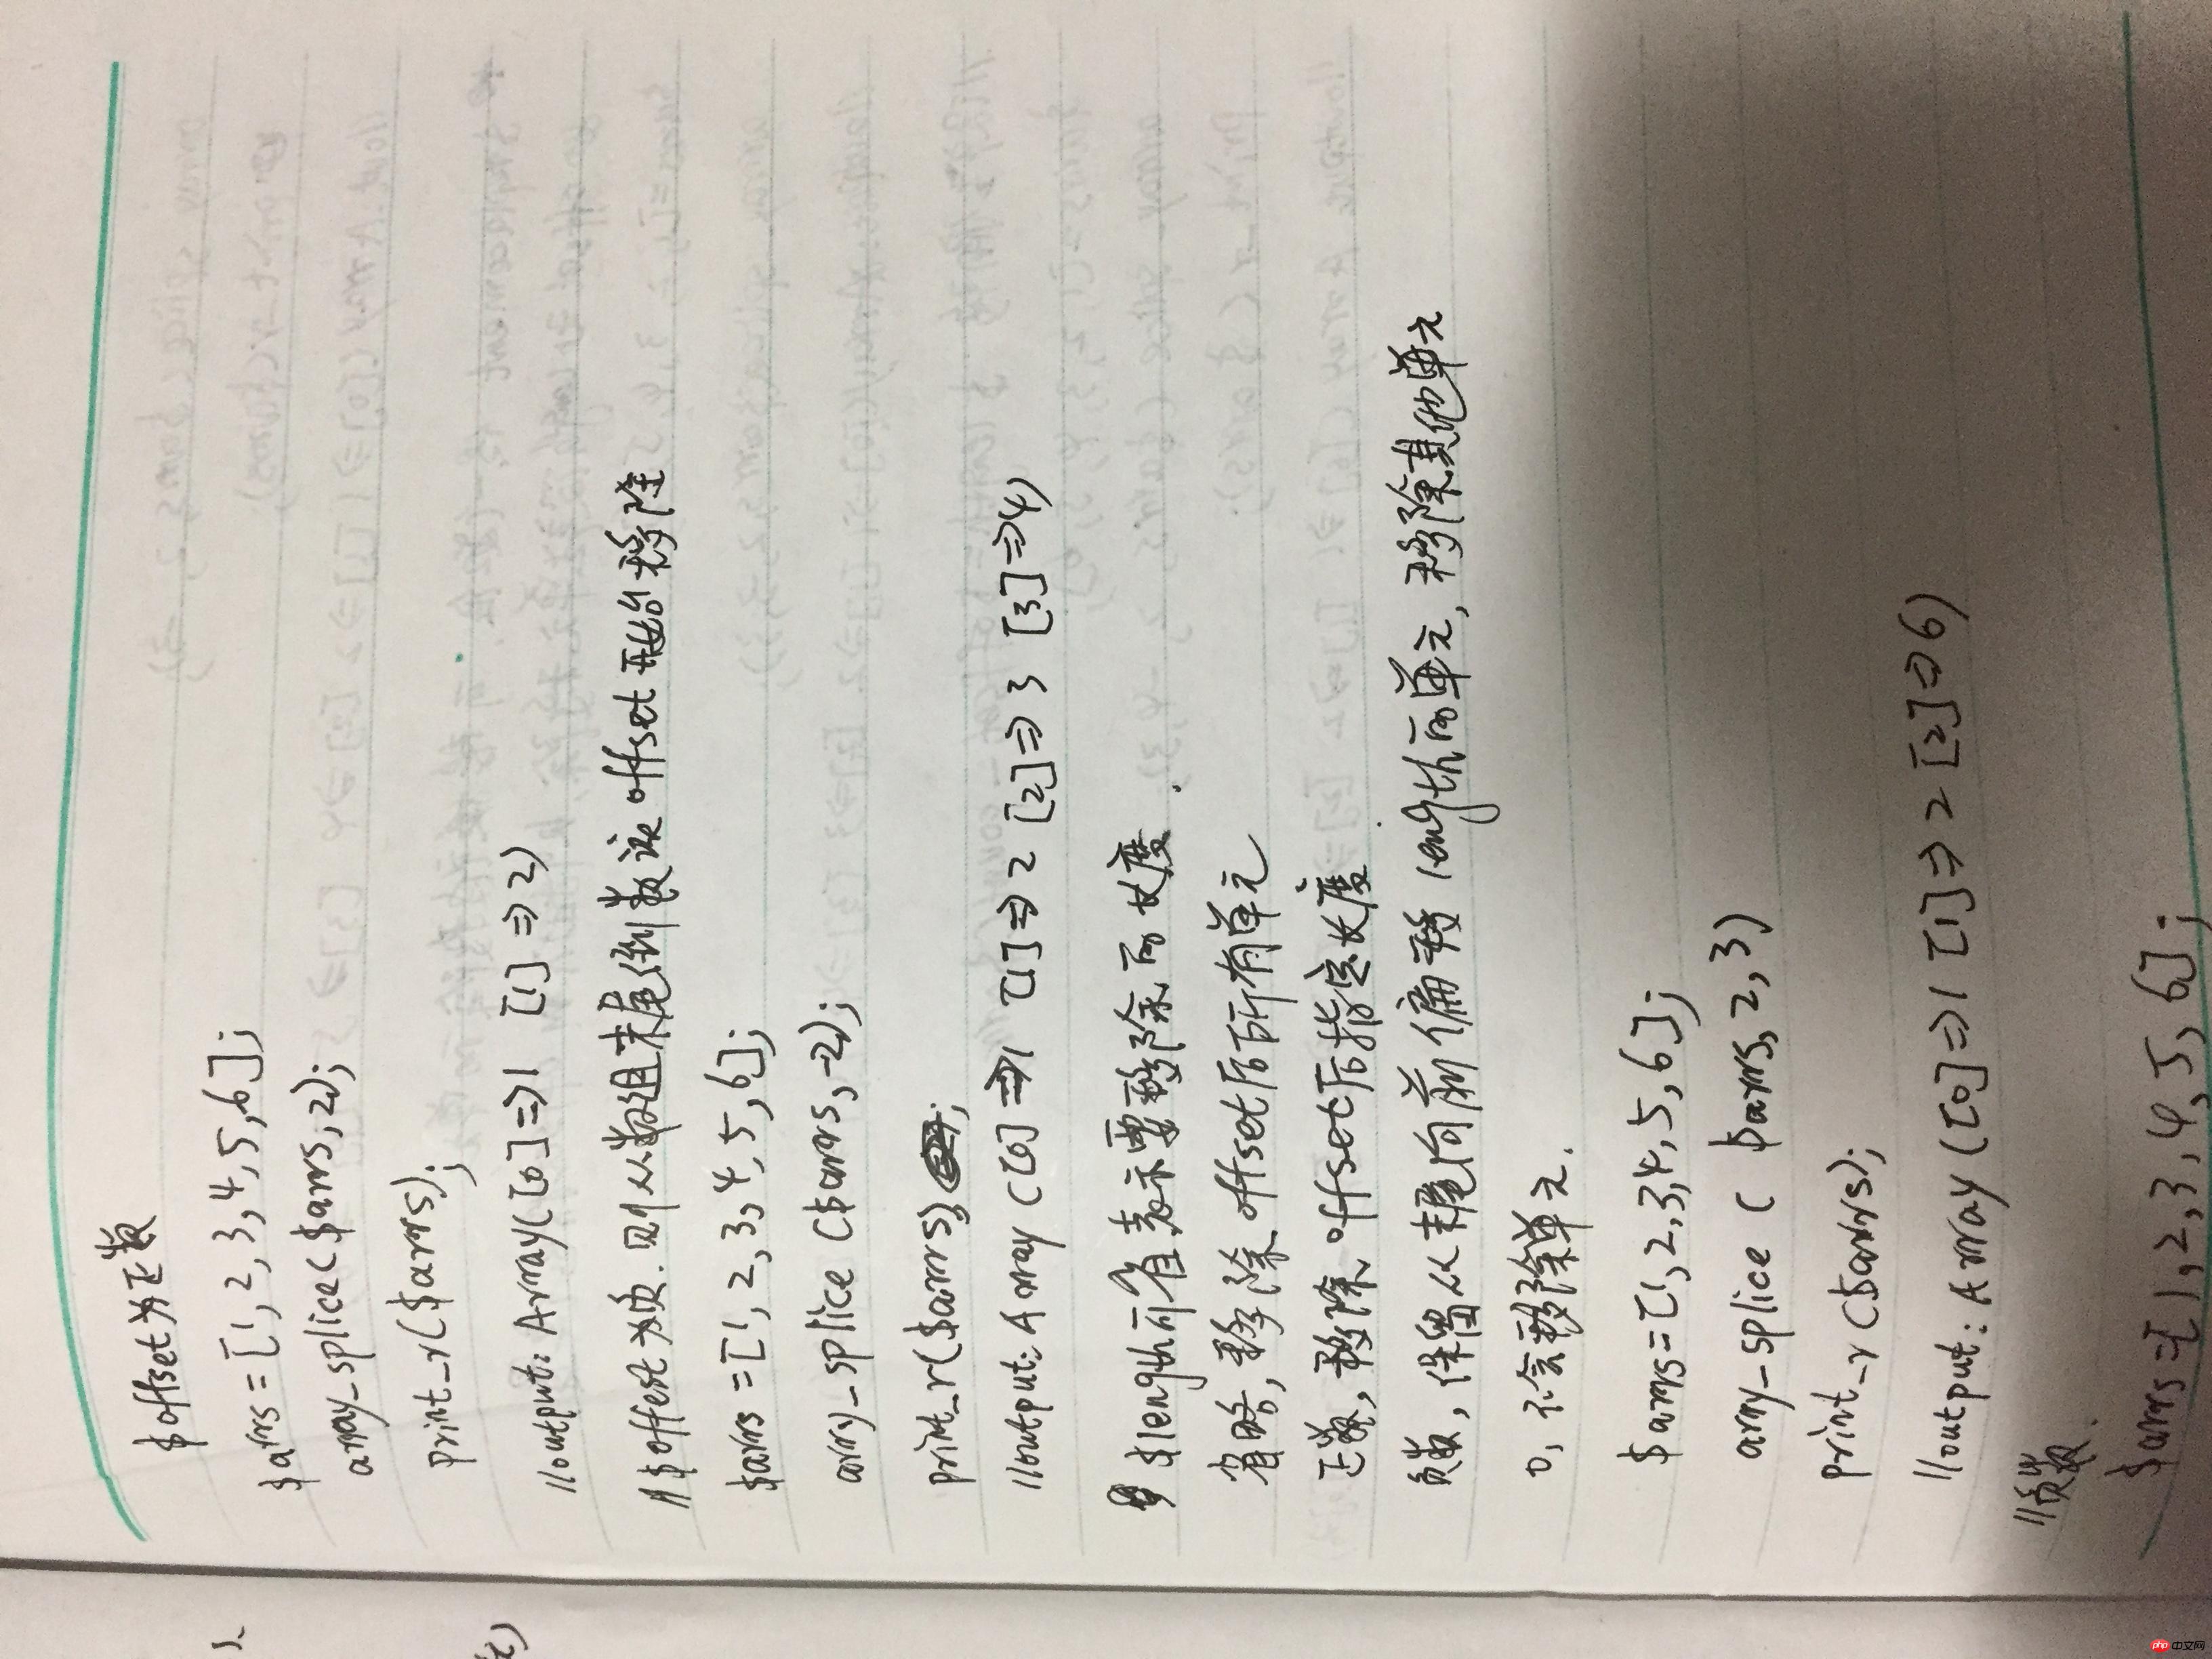 $offset为正数
$arrs=[1,2,3,4,5,6];
array_splice($arrs,2);
print_r($arrs);
//output:Array([0]=>1 [1]=>2)
$offest为负.则从数组末尾倒数该offset开始移除
$arrs=[1,2,3,4,5,6];
array_splice($arrs,-2);
print_r($arrs);
//output:Array([0]=>1 [1]=>2 [2]=>3 [3]=>4)
$length可省表示要移除的长度.
省略,移除offset后的所有单元
正数,移除offset后指定长度
负数,保留从末尾向前偏移length的单元,移除其他单元
0,不会移除单元.
$arrs=[1,2,3,4,5,6];
array_splice($arrs,2,3)
print_r($arrs);
//output:Array([0]=>1 [1]=>2 [2]=>6)
//负数.
$arrs=[1,2,3,4,5,6];
php中文网